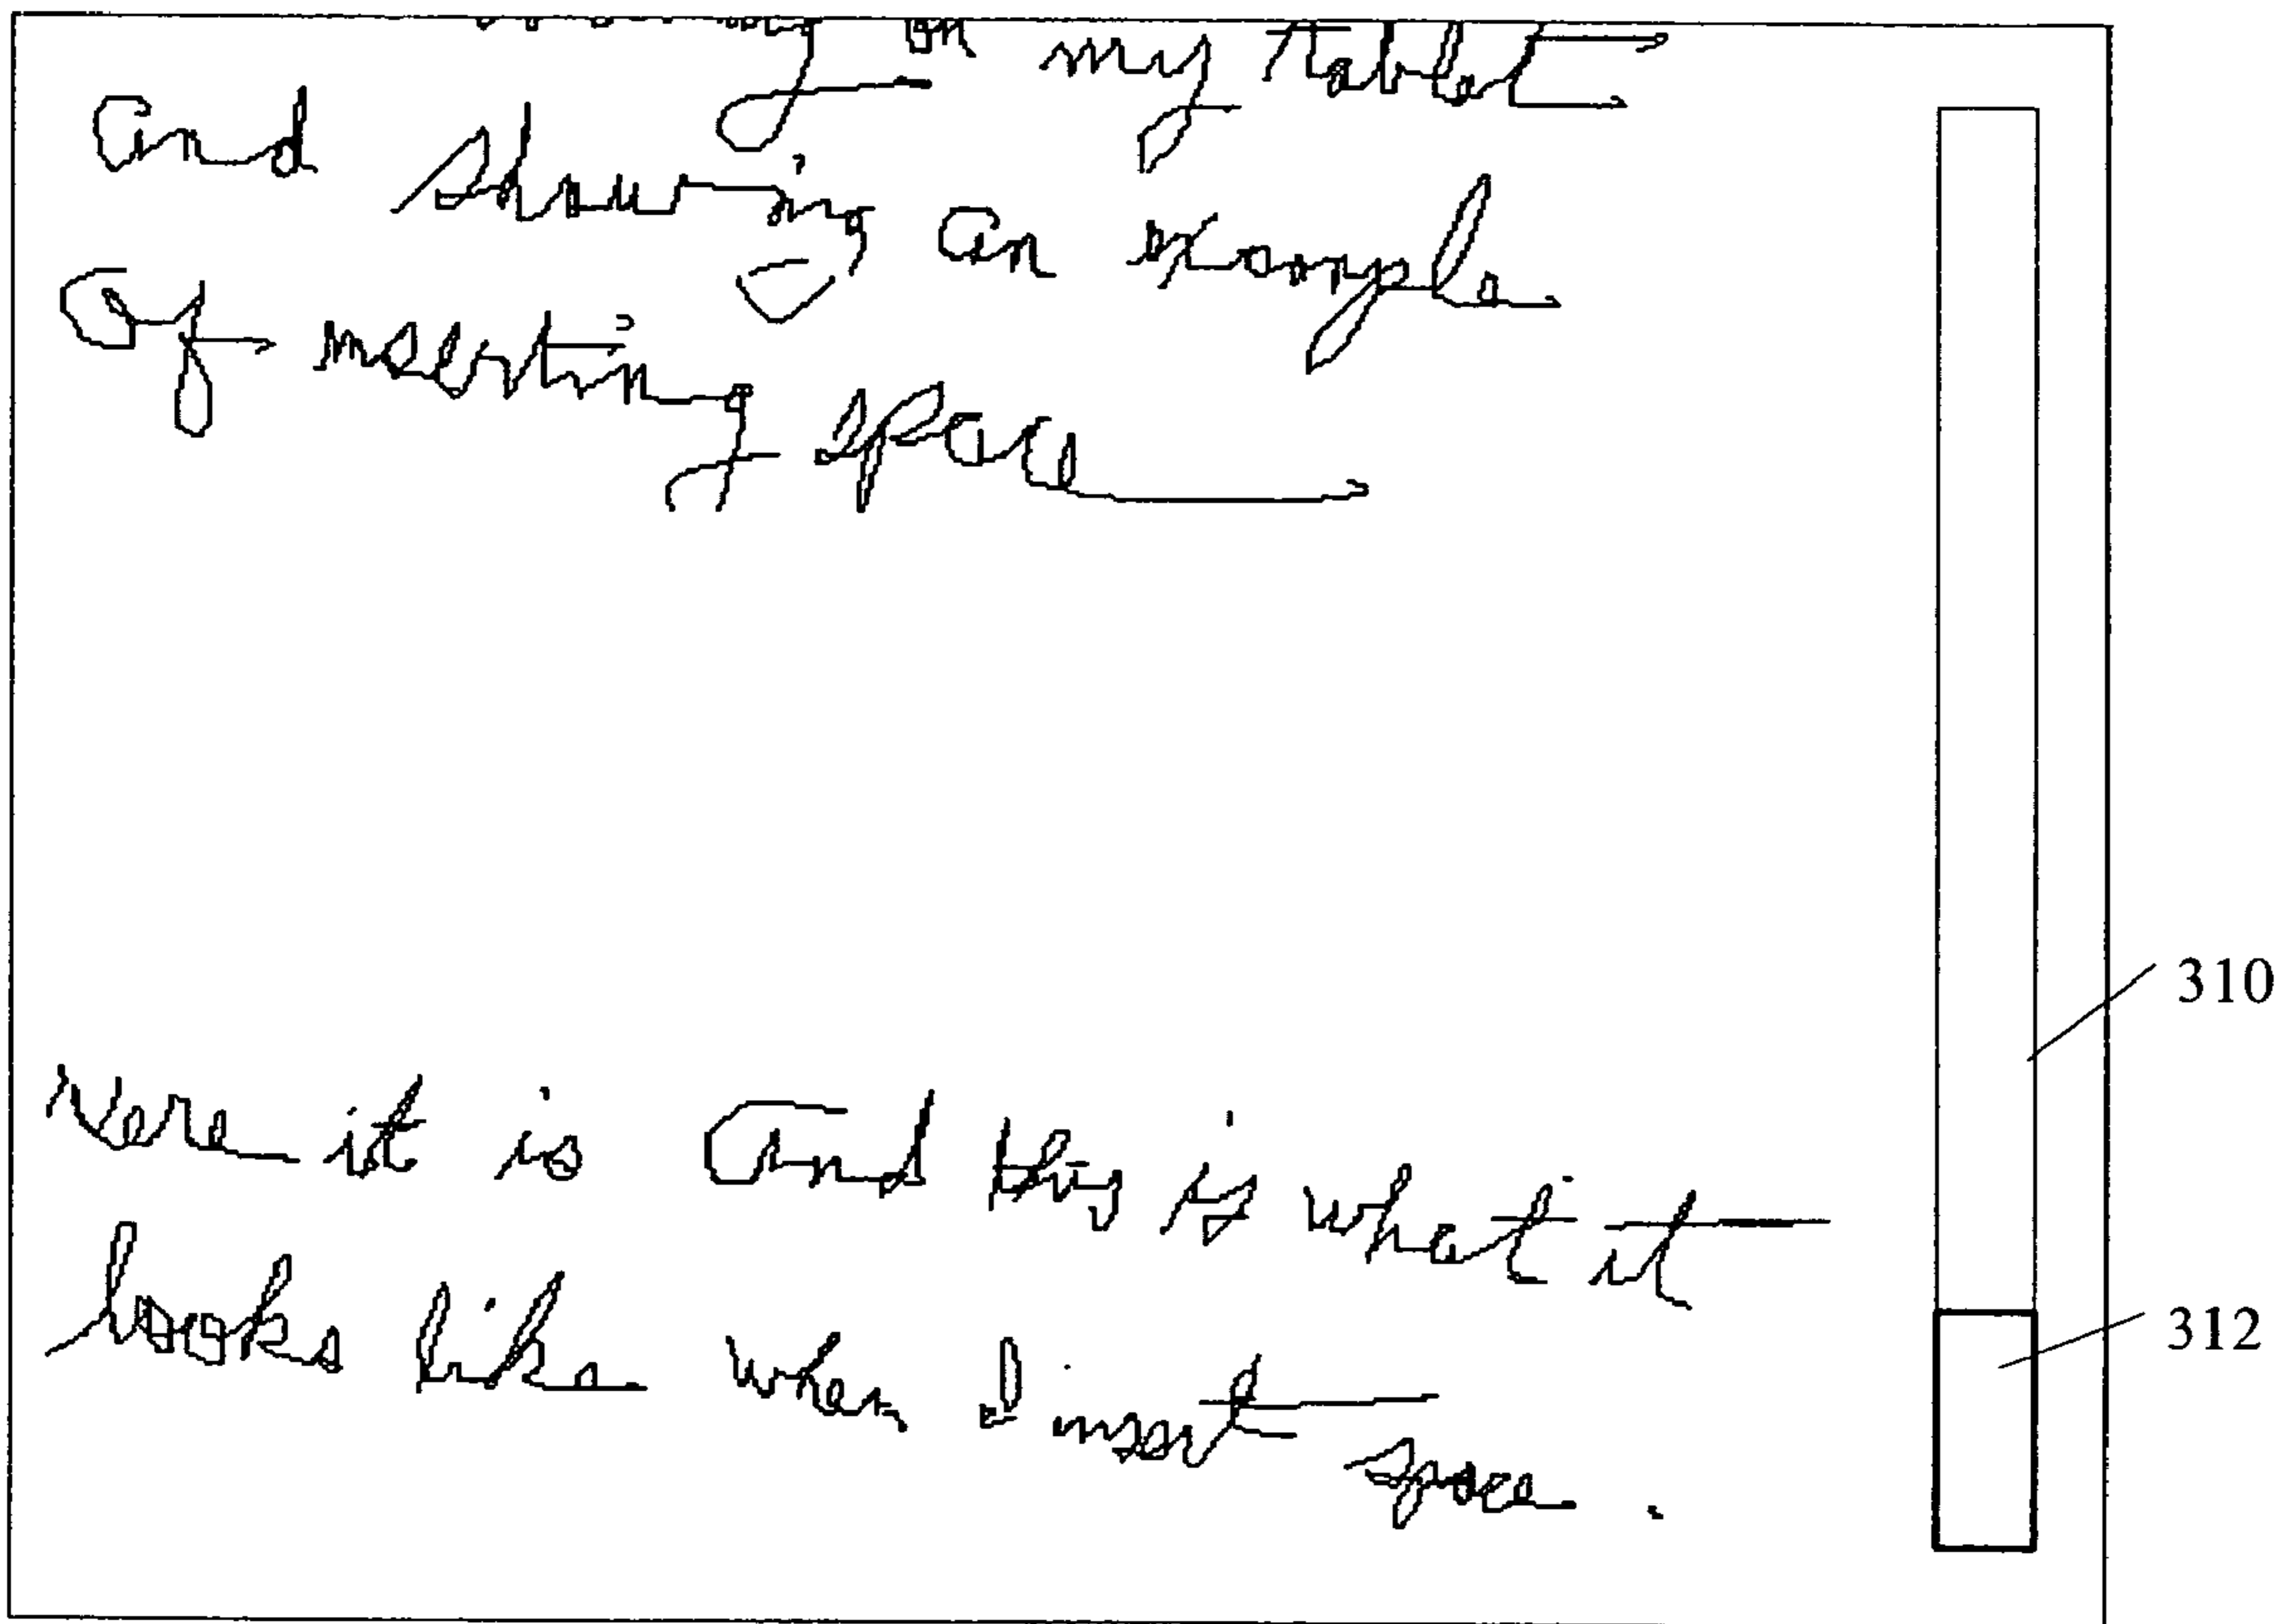 on my tablet
and showing an example
of inserting space
were it is and this is what it
looks like when I insert space.
310
312